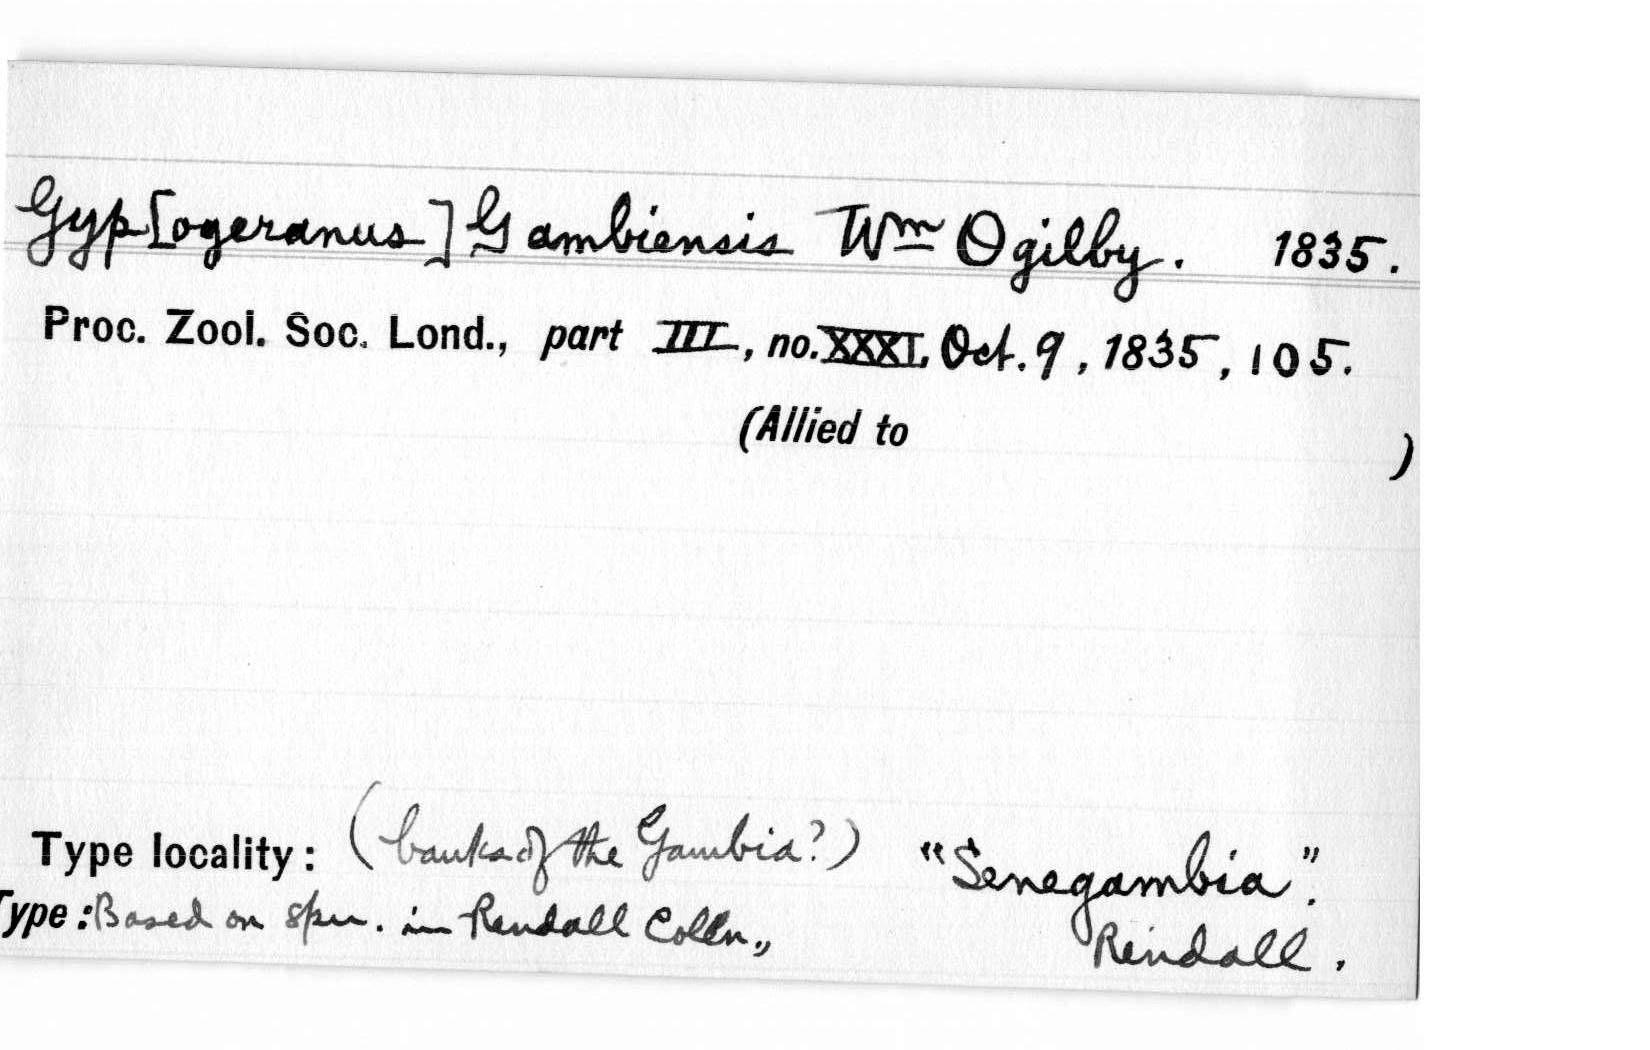 Gyp[ogeranus] Gambiensis Wm Ogilby. 1835.
Proc. Zool. Soc. Lond., part III, no. XXXI, Oct. 9, 1835, 105.
(Allied to )
Type locality: (banks of the Gambia?) "Senegambia".
Type: Based on spm. in Rendall Colln., Rendall.